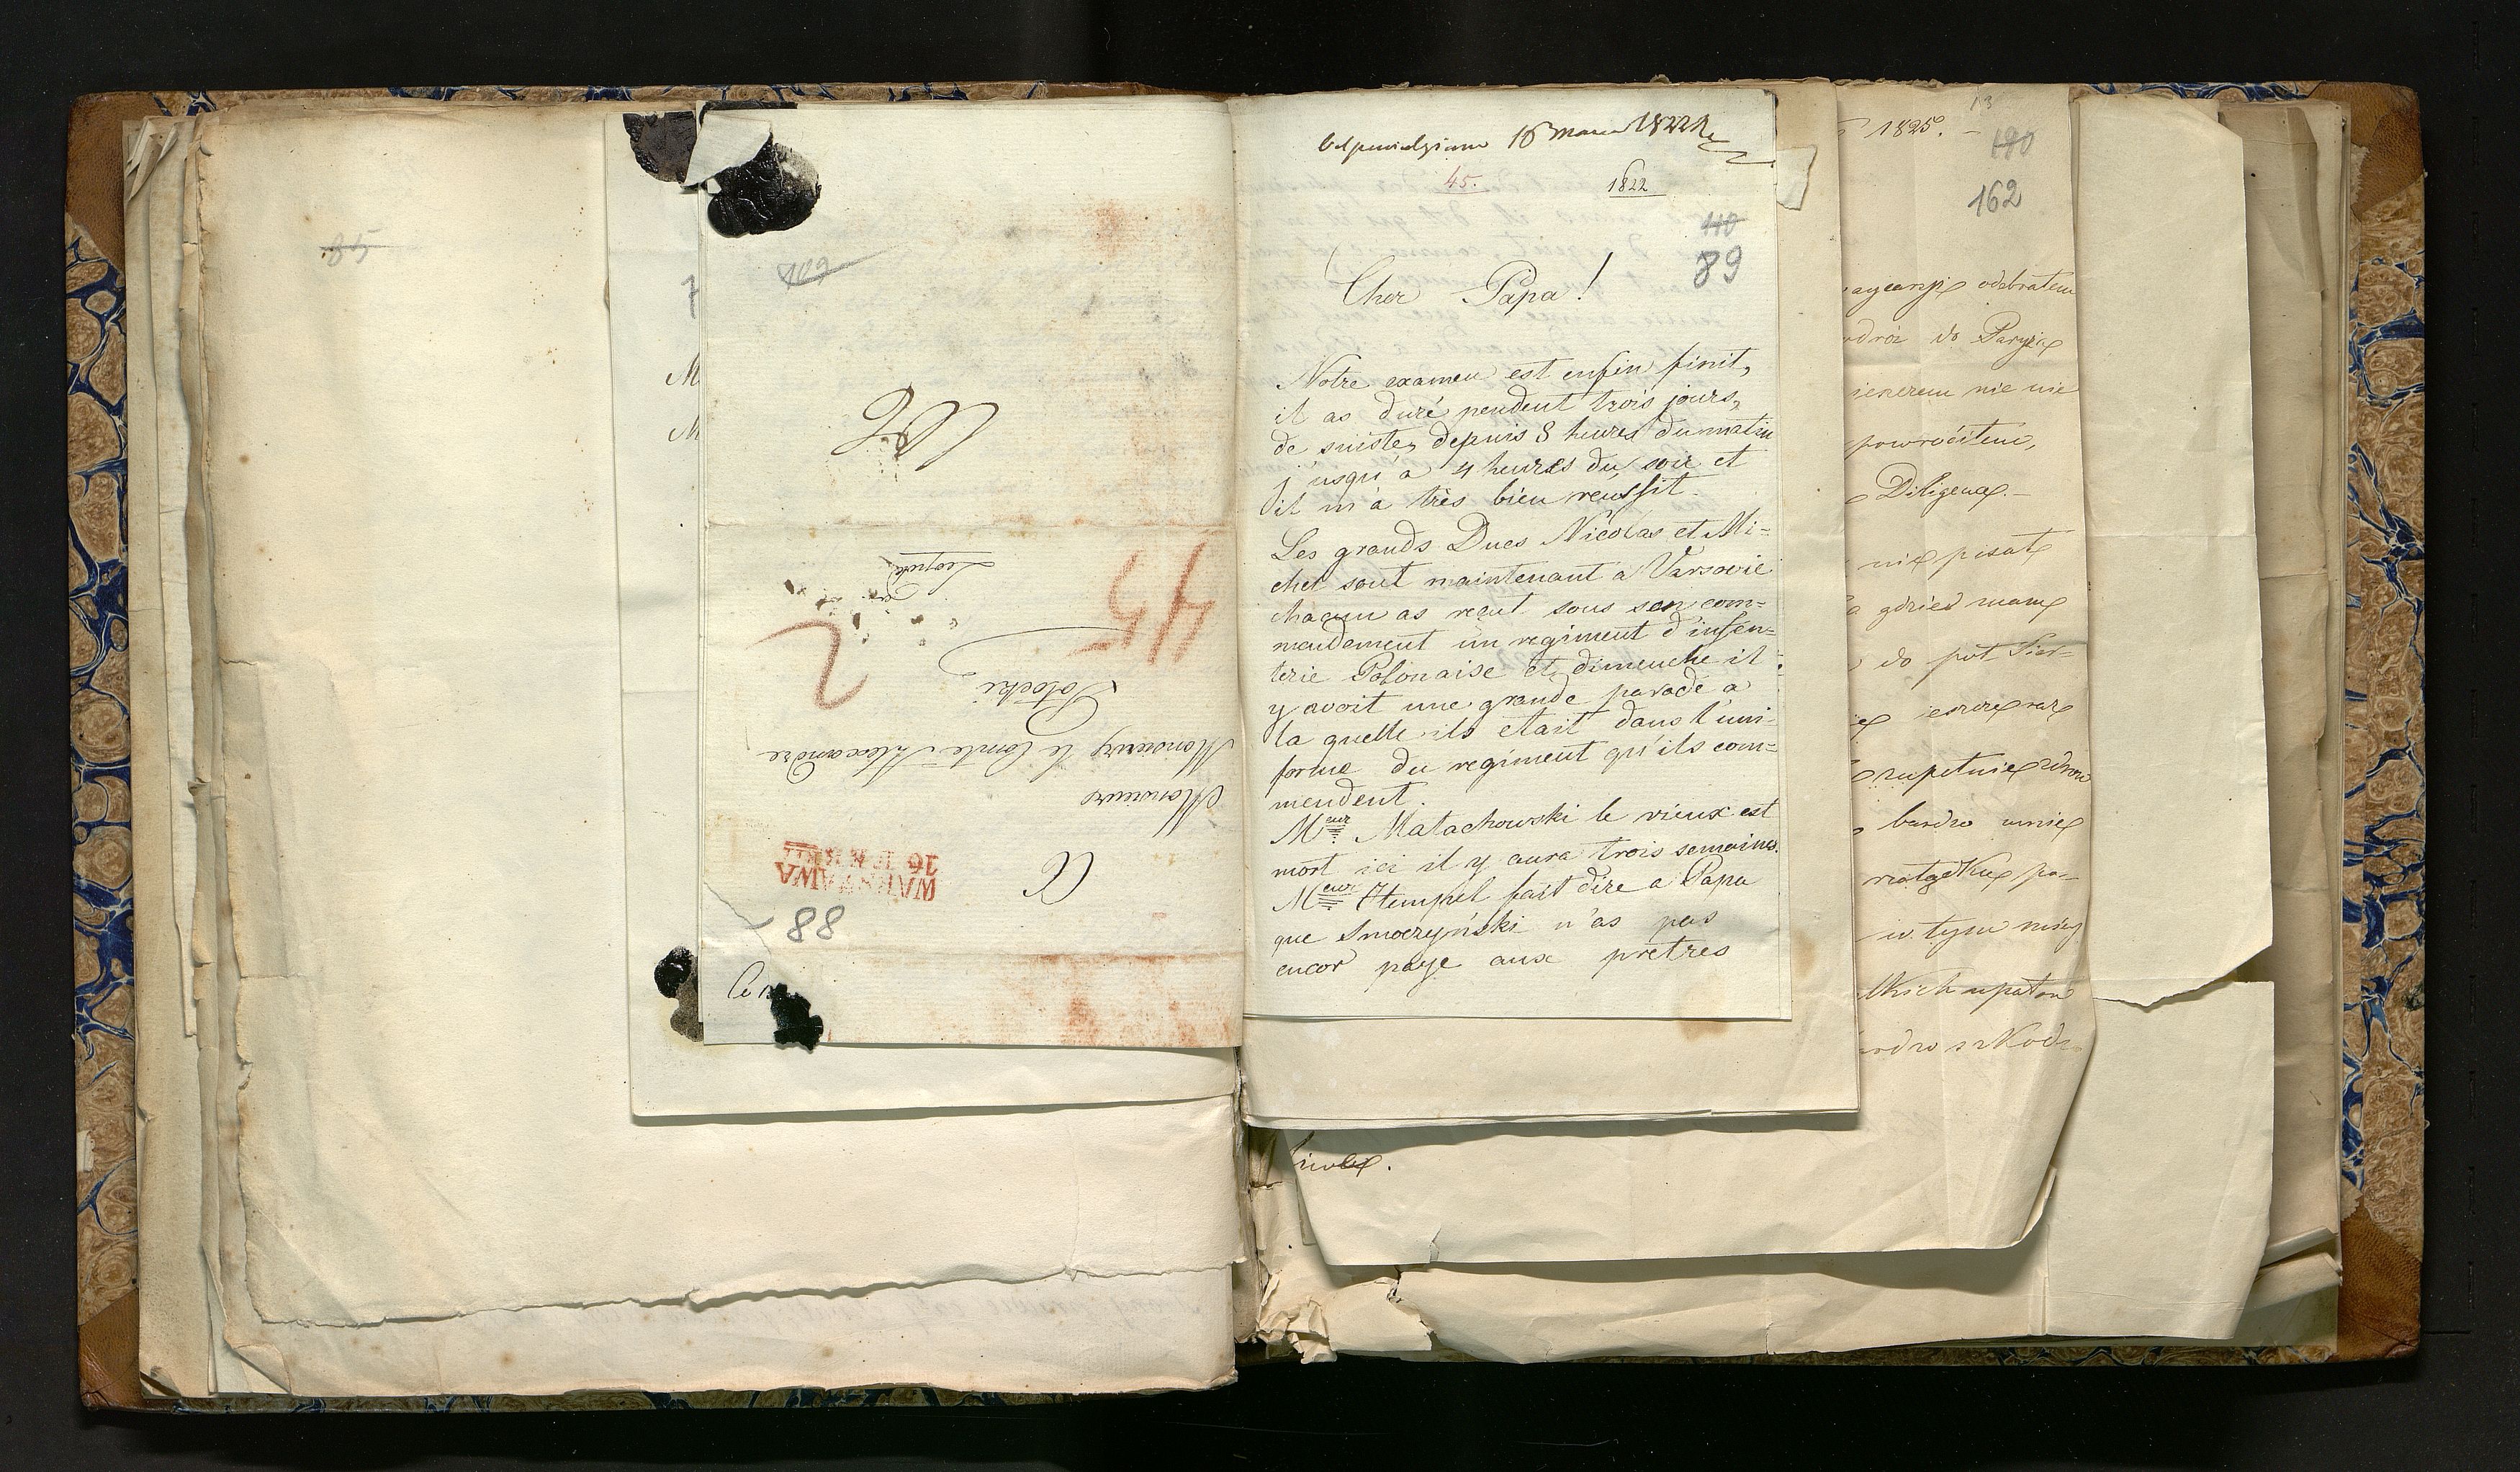 85
109
A
Monsieur
Monsieur le Comte Alexandre
Potocki
45
2
Leopol
WARSZAWA
26
88
Ce
Odpowiedziano 16 Marca 1822
45.
1822
110
89
Cher Papa!
Notre examen est enfin finit,
il as duré pendent trois jours,
de suiste, depuis 8 heures du matin
j'usqu'a 4 heures du soir et
il m'a très bien reussit.
Les grands Ducs Nicolas et Mi=
chel sont maintenant a Varsovie
chacun as reçut sous son com=
mendement un regiment d'infen=
terie Polonaise et dimenche il
y avoit une grande parade a
la quelle ils etait dans l'uni-
forme du regiment qu'ils com=
mendent.
Meur Małachowski le vieux est
mort ici il y aura trois semaines.
Meur Hempel fait dire a Papa
que Smoczyński n'as pas
encor paye aux prètres
13
1825. -
180
162
odebrałem
do Paryża
nie nie
powrócitem,
Diligence. -
nie pisat
gdzieś mamy
do pot
zupetnie zdrow
bardzo umie
w tym